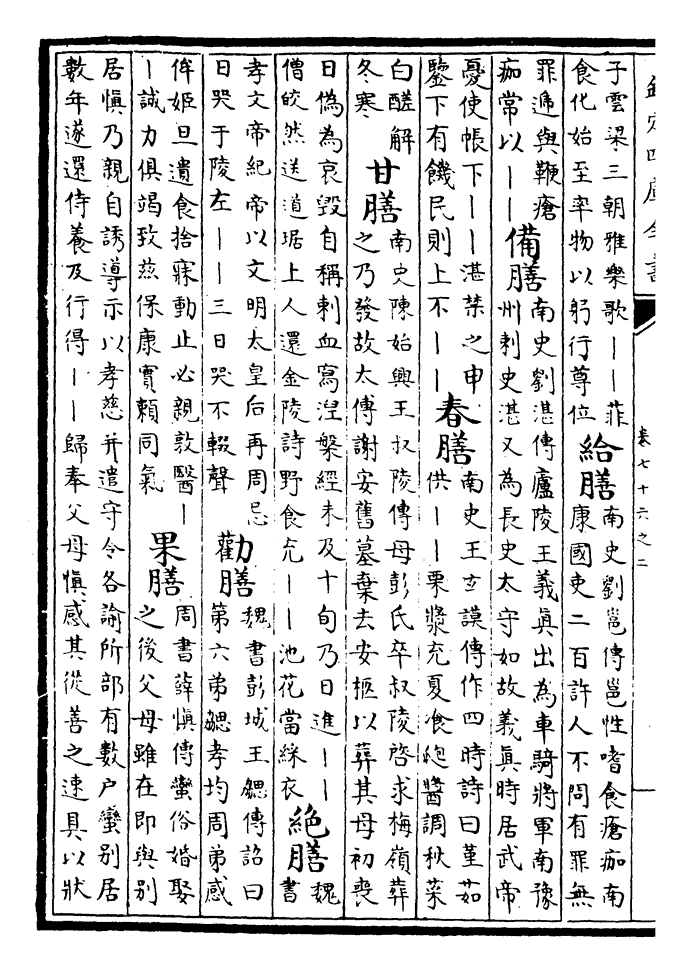 欽定四庫全書
卷七十六之二
子雲梁三朝雅樂歌——菲
食化始至率物以躬行尊位
給膳
南史劉邕傳邕性嗜食瘡痂南
康國吏二百許人不問有罪無
罪遞與鞭瘡
痂常以——
備膳
南史劉湛傳廬陵王義真出為車騎將軍南豫
州刺史湛又為長史太守如故義真時居武帝
憂使帳下——湛禁之申
鑒下有饑民則上不——
春膳
南史王玄謨傳作四時詩曰堇茹
供——栗漿充夏飡瓟醬調秋菜
白醝解
冬寒
甘膳
南史陳始興王叔陵傳母彭氏卒叔陵啓求梅嶺葬
之乃發故太傅謝安舊墓棄去安柩以葬其母初喪
日偽為哀毀自稱刺血寫涅槃經未及十旬乃日進——
僧皎然送道琚上人還金陵詩野食充——池花當綵衣
絶膳
魏
書
孝文帝紀帝以文明太皇后再周忌
日哭于陵左——三日哭不輟聲
勸膳
魏書彭城王勰傳詔曰
第六弟勰孝均周弟感
侔姬旦遺食捨寐動止必親敦醫—
—誠力俱竭致兹保康實賴同氣
果膳
周書薛慎傳蠻俗婚娶
之後父母雖在即與别
居慎乃親自誘導示以孝慈并遣守令各諭所部有數户蠻别居
數年遂還侍養及行得——歸奉父母慎感其從善之速具以狀